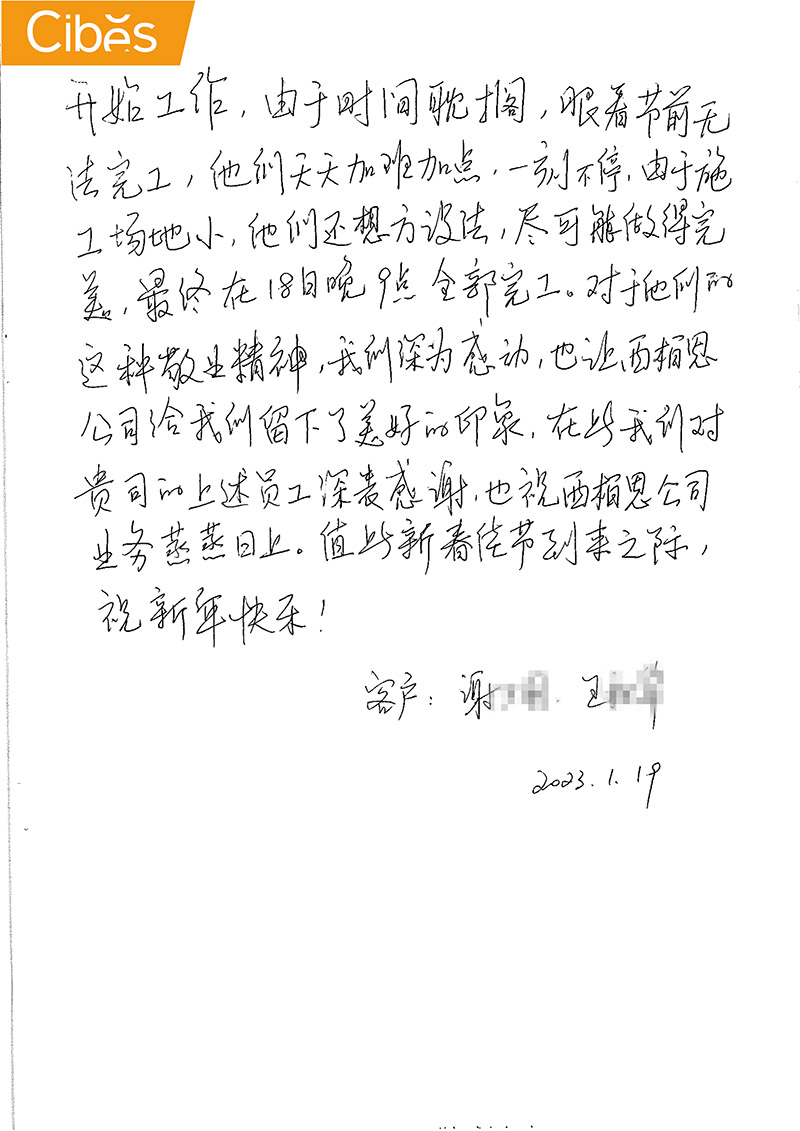 Cibes
开始工作，由于时间耽搁，眼看节前无
法完工，他们天天加班加点，一刻不停，由于施
工场地小，他们还想方设法，尽可能做得完
美，最终在18日晚9点全部完工。对于他们的
这种敬业精神，我们深为感动，也让西柏思
公司给我们留下了美好的印象，在此我们对
贵司的上述员工深表感谢，也祝西柏思公司
业务蒸蒸日上。值此新春佳节到来之际，
祝新年快乐！
客户：谢 王
2023.1.19